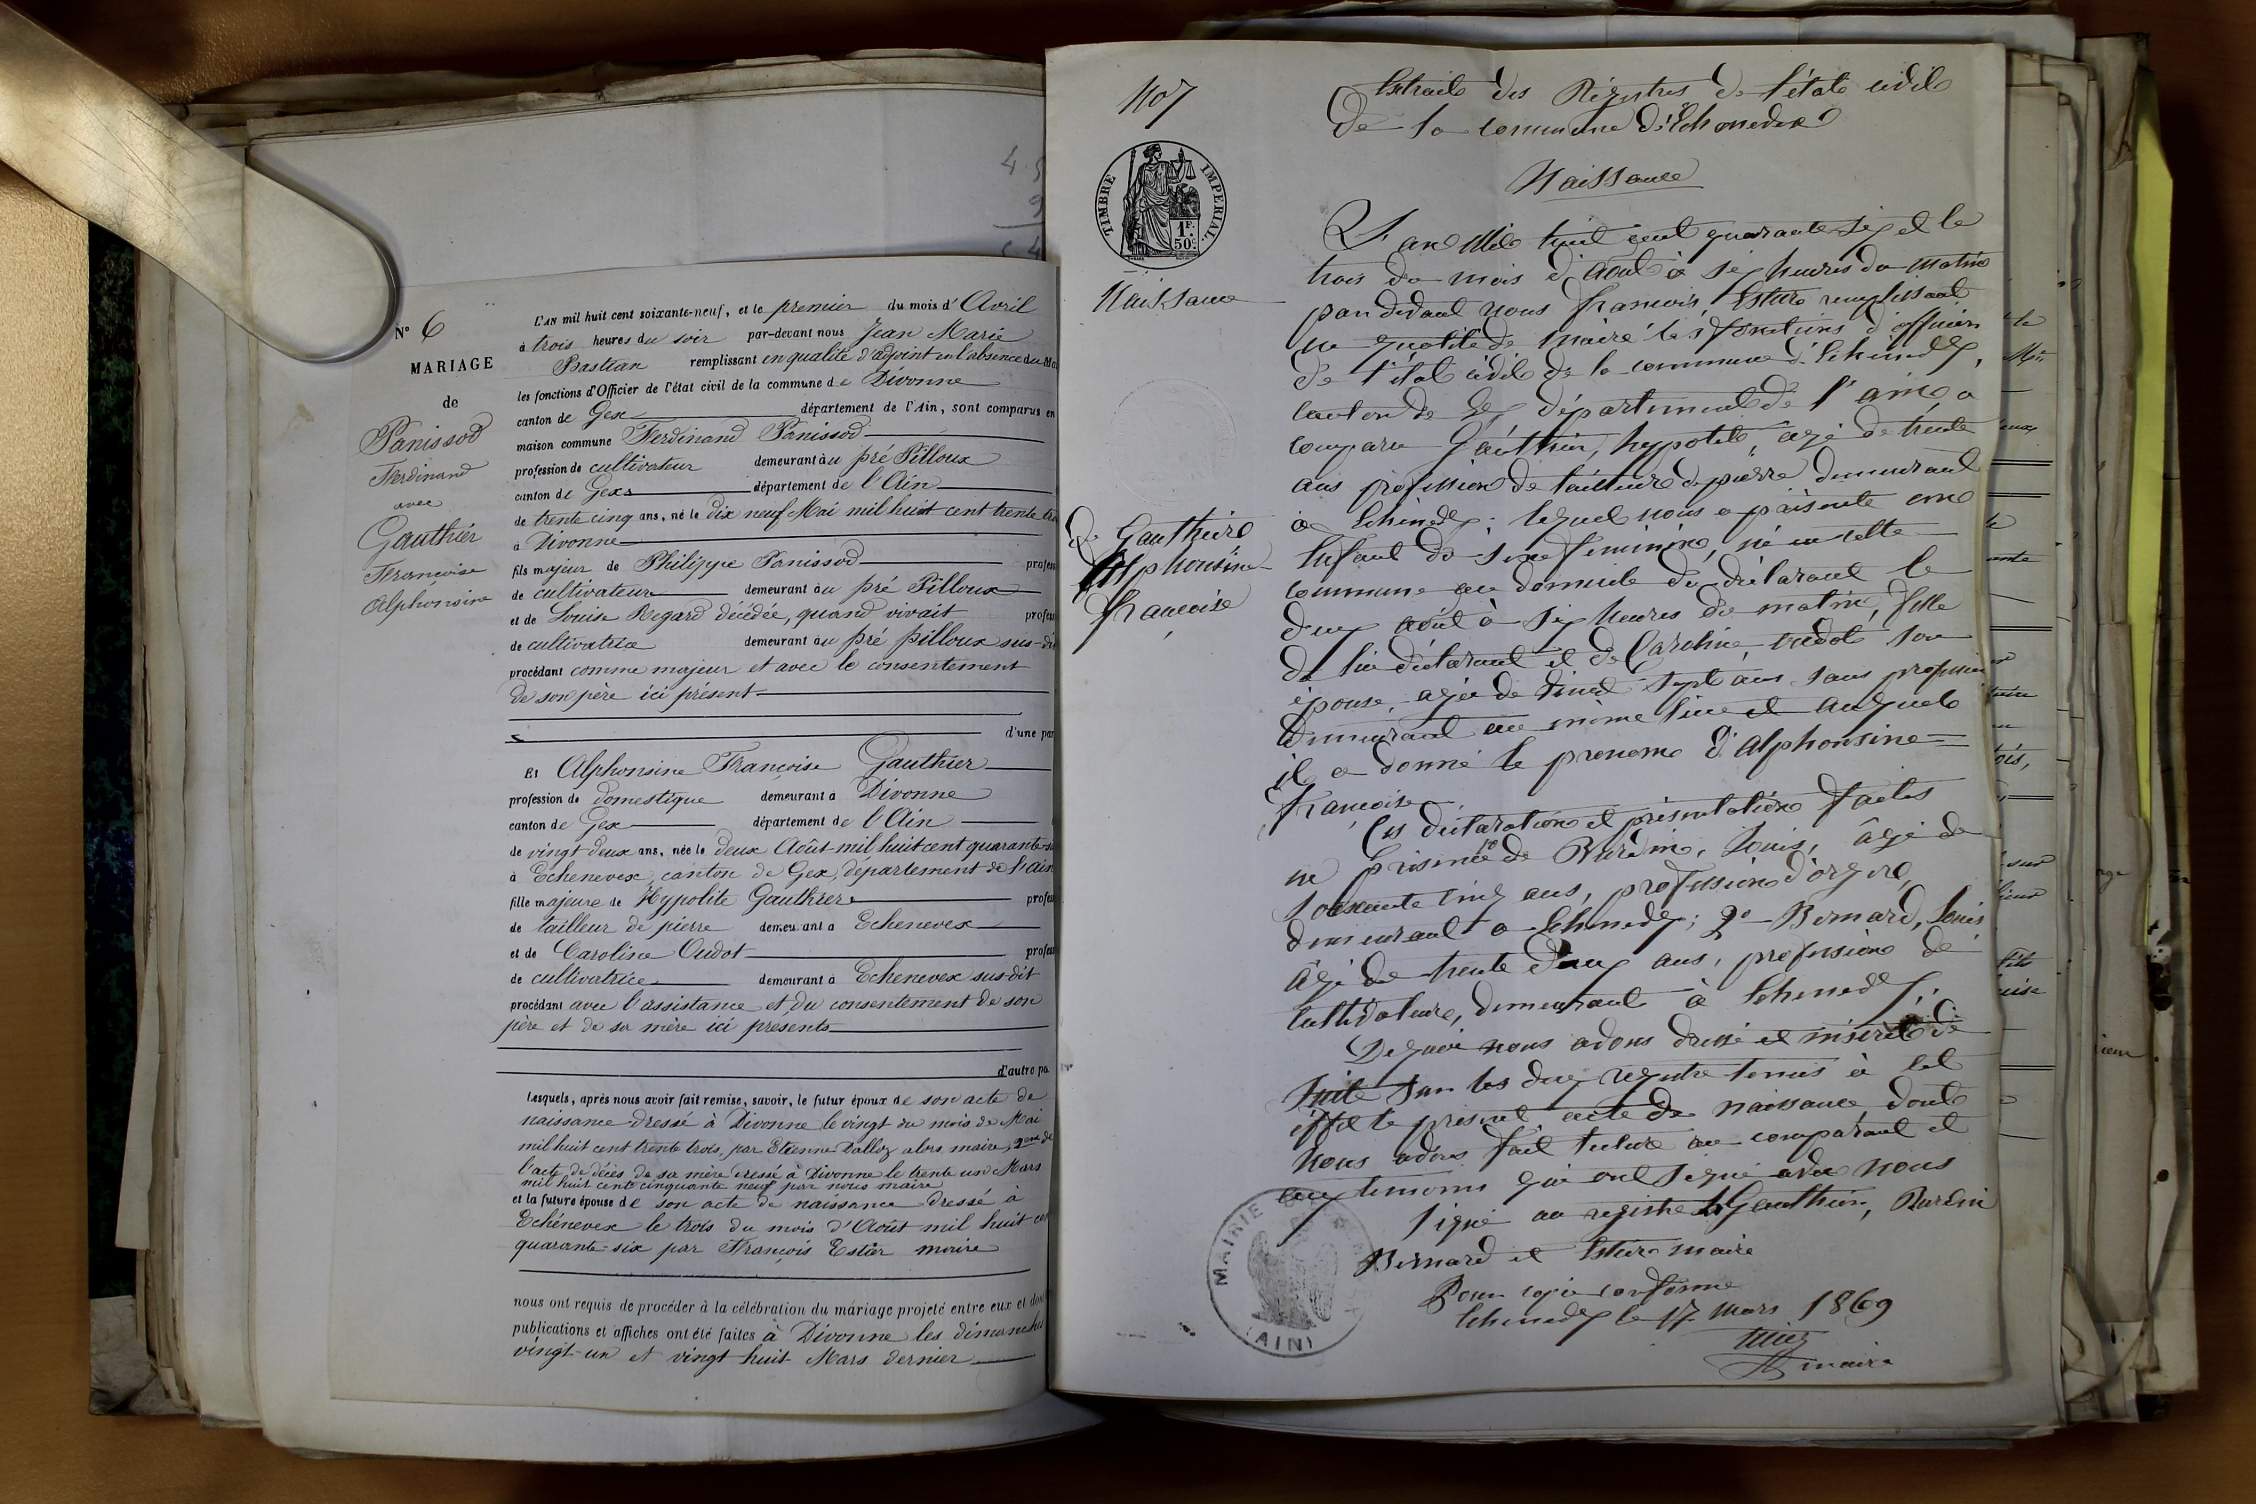 4.5
9
N° 6
MARIAGE
de
Panissod
Ferdinand
avec
Gauthier
Françoise
Alphonsine
L'AN mil huit cent soixante-neuf, et le premier du mois d'Avril
à trois heures du soir par-devant nous Jean Marie
Bastian remplissant en qualité d'adjoint en l'absence du
les fonctions d'Officier de l'état civil de la commune de Divonne
canton de Gex département de l'Ain, sont comparus en
maison commune Ferdinand Panissod
profession de cultivateur demeurant au pré Pilloux
canton de Gex département de l'Ain
de trente cinq ans, né le dix neuf Mai mil huit cent trente
à Divonne
fils majeur de Philippe Panissod
de cultivateur demeurant au pré Pilloux
et de Louise Regard décédée, quand vivait
de cultivatrice demeurant au pré pilloux sus-dit
procédant comme majeur et avec le consentement
de son père ici présent
d'une par
Et Alphonsine Françoise Gauthier
profession de domestique demeurant à Divonne
canton de Gex département de l'Ain
de vingt deux ans, née le deux Août mil huit cent quarante-
à Echenevex, canton de Gex, département de l'Ain
fille majeure de Hyppolite Gauthier
de tailleur de pierre demeurant à Echenevex
et de Caroline Oudot
de cultivatrice demeurant à Echenevex sus-dit
procédant avec l'assistance et du consentement de son
père et de sa mère ici présents
d'autre pa
Lesquels, après nous avoir fait remise, savoir, le futur époux de son acte de
naissance dressé à Divonne le vingt du mois de Mai
mil huit cent trente trois, par Etienne Dalloz alors maire, 2ent de
l'acte de décès de sa mère dressé à Divonne le trente un Mars
mil huit cent cinquante neuf par nous maire
et la future épouse de son acte de naissance dressé à
Echénevex le trois du mois d'Août mil huit cent
quarante-six par François Estier maire
nous ont requis de procéder à la célébration du mariage projeté entre eux et dont
publications et affiches ont été faites à Divonne les dimanches
vingt-un et vingt huit Mars dernier
1107
TIMBRE IMPERIAL
1F.
50c.
Naissance
de Gauthier
Alphonsine
françoise
Extrait des Régistres de l'état civil
De la commune d'Echenevex
Naissance
L'an Mil huit cent quarante six et le
trois du mois d'Aout à six heures du matin
par devant nous françois, Esture remplissant
en qualité de maire les fonctions d'officier
de l'état civil de la commune d'Echenevex,
canton de Gex département de l'ain, a
comparu Gauthier, hypolite, agé de trente
ans profession de tailleur de pierre demeurant
à Echenevex; lequel nous a présenté une
Enfant du sexe féminin, né en cette
commune au domicile du déclarant le
deux août à six heures du matin, fille
de lui déclarant et de Caroline oudot son
épouse, agée de vingt-sept ans sans profession
demeurant au même lieu et auquel
il a donné le prenom d'Alphonsine
françoise.
Ces déclaration et présentation faites
en présence 1° de Burdin, Louis, âgé de
soixante cinq ans, profession d'
demeurant a Echenevex; 2° Bernard, Louis
âgé de trente deux ans, profession de
cultivateur, demeurant à Echenevex.
De quoi nous avons dressé et inscrit de
suite sur les deux registre tenus à cet
effet le présent acte de naissance, dont
nous avons fait lecture au comparant et
aux temoins qui ont signé avec nous
signé au registre Gauthier, Burdin
Bernard et Esture maire
Pour copie conforme
Echenevex le 17 mars 1869
maire
MAIRIE
(AIN)